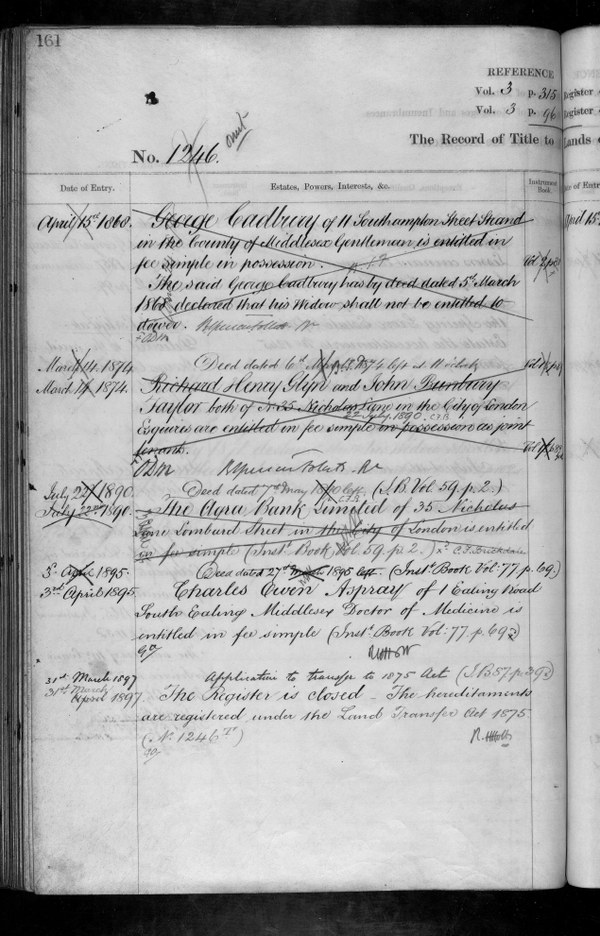 161
REFERENCE
Vol. 3 p. 315
Vol. 3 p. 96
Register
Register
The Record of Title to
Lands
No. 1246. Omit
Date of Entry.
Estates, Powers, Interests, &c.
Instrument Book.
Date of Entry
April 15th 1868. George Cadbury of 11 Southampton Street Strand
April 15
in the County of Middlesex Gentleman is entitled in
fee simple in possession.
The said George Cadbury has by deed dated 5th March
1868 declared that his Widow shall not be entitled to
dower.
March 14. 1874. Deed dated 6th 1874 left at 11 o'clock
March 14. 1874. Richard Henry Glyn and John Bunbury
Taylor both of No. 35 Nicholas Lane in the City of London
22nd July. 1890. C.F.B.
Esquires are entitled in fee simple in possession as joint
tenants.
July 22 1890. Deed dated 7th May 1890 left. (I.B. Vol. 59. p. 2.)
July 22nd 1890. The Agra Bank Limited of 35 Nicholas
Lane Lombard Street in the City of London is entitled
in fee simple (Instt. Book Vol. 59. p. 2.) C.F. Brickdale
3rd April 1895. Deed dated 27th March 1895 left. (Inst. Book Vol: 77. p. 69.)
3rd April 1895. Charles Owen Aspray of 1 Ealing Road
South Ealing Middlesex Doctor of Medicine is
entitled in fee simple (Inst. Book Vol: 77. p. 69.)
31st March 1897 Application to transfer to 1875 Act (I.B 57. p. 39)
31st March
April 1897 The Register is closed - The hereditaments
are registered under the Land Transfer Act 1875
(No. 1246)